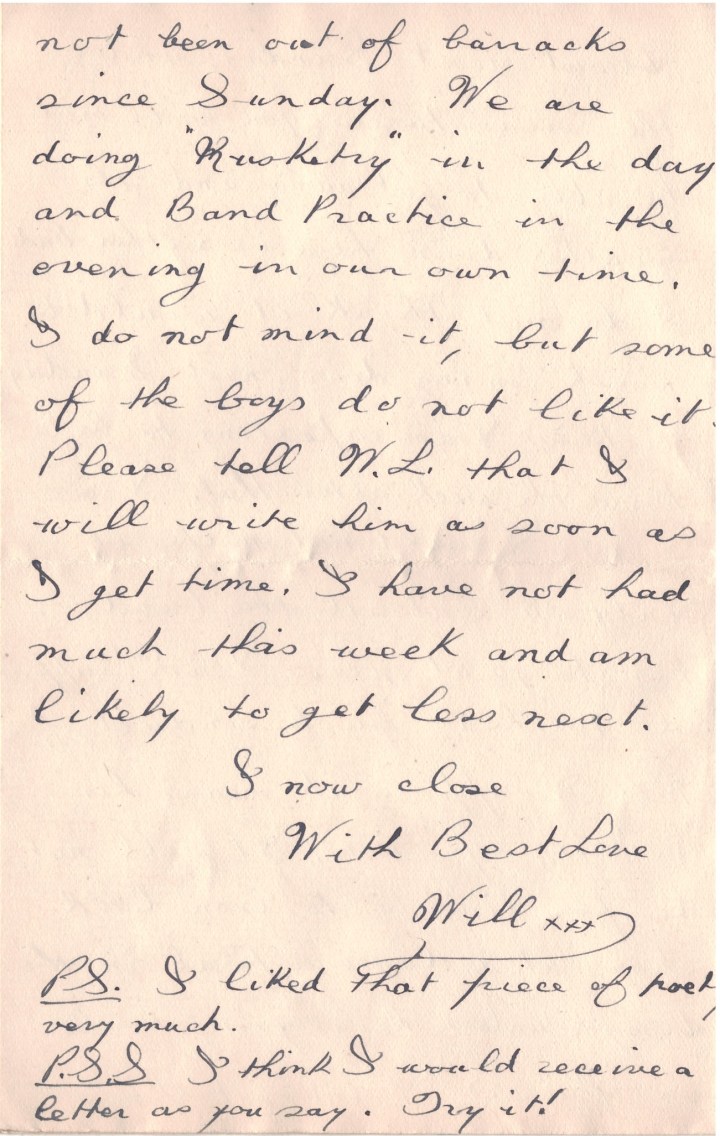 not been out of barracks
since Sunday. We are
doing "Musketry" in the day
and Band Practice in the
evening in our own time.
I do not mind it, but some
of the boys do not like it.
Please tell W.L. that I
will write him as soon as
I get time. I have not had
much this week and am
likely to get less next.
I now close
With Best Love
Will xxx
P.S. I liked that piece of poet
very much.
P.S.S I think I would receive a
letter as you say. Try it!